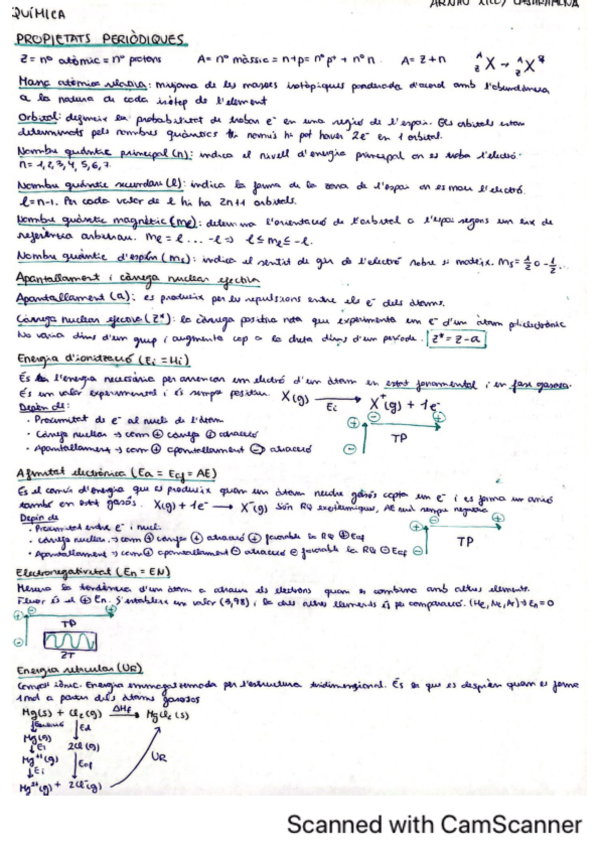 QUÍMICA
PROPIETATS PERIÒDIQUES
Z = nº atòmic = nº protons A = nº màssic = n+p = nºp⁺ + nºn A = Z + n
Massa atòmica relativa: mitjana de les masses isotòpiques ponderada d'acord amb l'abundància
a la natura de cada isòtop de l'element
Orbital: defineix la probabilitat de trobar e⁻ en una regió de l'espai. Els orbitals estan
determinats pels nombres quàntics només hi pot haver 2e⁻ en 1 orbital.
Nombre quàntic principal (n): indica el nivell d'energia principal on es troba l'electró.
n = 1, 2, 3, 4, 5, 6, 7.
Nombre quàntic secundari (l): indica la forma de la zona de l'espai on es mou l'electró.
l = n-1. Per cada valor de l hi ha 2n+1 orbitals.
Nombre quàntic magnètic (ml): determina l'orientació de l'orbital a l'espai segons un eix de
referència arbitrari. ml = l ... -l ⇒ l ≤ ml ≤ -l.
Nombre quàntic d'espín (ms): indica el sentit de gir de l'electró sobre si mateix. ms = 1/2 o -1/2.
Apantallament i càrrega nuclear efectiva
Apantallament (a): es produeix per les repulsions entre els e⁻ dels àtoms.
Càrrega nuclear efectiva (Z*): la càrrega positiva neta que experimenta un e⁻ d'un àtom polielectrònic
No varia dins d'un grup i augmenta cap a la dreta dins d'un període. Z* = Z - a
Energia d'ionització (Ei = Hi)
És l'energia necessària per arrencar un electró d'un àtom en estat fonamental i en fase gasosa.
És un valor experimental i és sempre positiu. X(g) → Ei X⁺(g) + 1e⁻
Depèn de:
· Proximitat de e⁻ al nucli de l'àtom
· Càrrega nuclear → com ⊕ càrrega ⊕ atracció
· Apantallament → com ⊕ apantallament ⊖ atracció
TP
Afinitat electrònica (Ea = AE)
És el canvi d'energia que es produeix quan un àtom neutre gasós capta un e⁻ i es forma un anió
també en estat gasós. X(g) + 1e⁻ → X⁻(g) Són RQ exotèrmiques, AE sempre negativa
Depèn de
· Proximitat entre e⁻ i nucli.
· Càrrega nuclear → com ⊕ càrrega ⊕ atracció ⊕ favorable la RQ
· Apantallament → com ⊕ apantallament ⊖ atracció ⊖ favorable la RQ
TP
Electronegativitat (En = EN)
Mesura la tendència d'un àtom a atraure els electrons quan es combina amb altres elements.
Fluor és el ⊕ En. S'estableix un valor (3,98) i la dels altres elements és per comparació. (He, Ne, Ar) → En = 0
TP
ZT
Energia reticular (UR)
Energia emmagatzemada per l'estructura tridimensional. És la que es desprèn quan es forma
1mol a partir dels àtoms gasosos
Mg(s) + Cl₂(g) → ΔHf MgCl₂(s)
Ed
Mg(g)
↓Ei 2Cl(g)
Mg⁺(g)
↓Ei UR
Mg²⁺(g) + 2Cl⁻(g)
Scanned with CamScanner